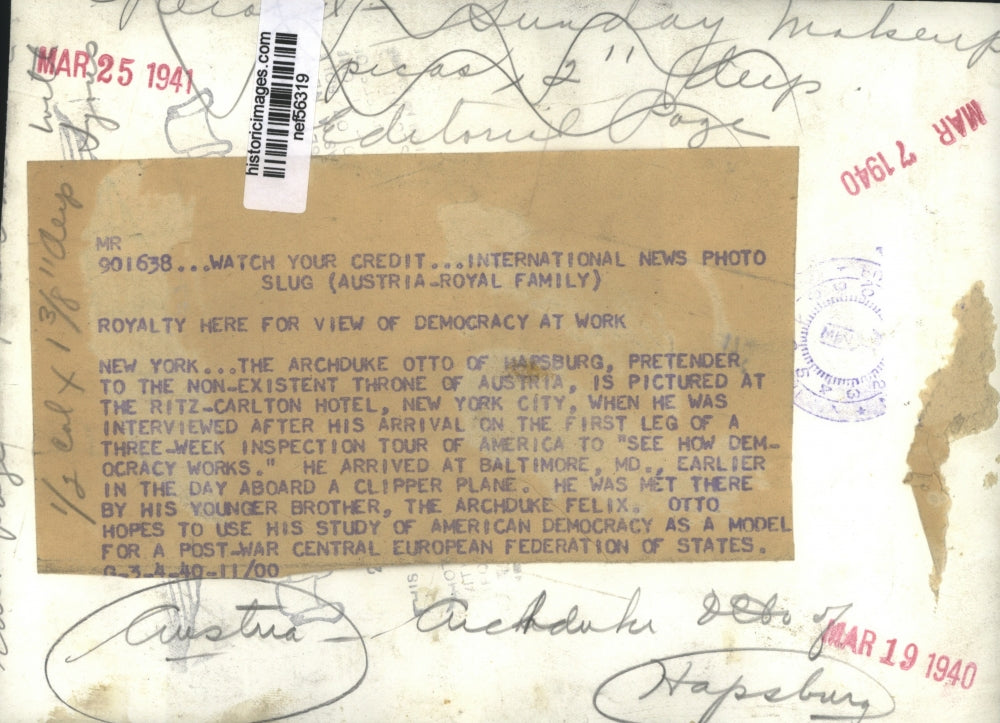 Record - Sunday Makeup
picas, 2" deep
Editorial Page
MAR 25 1941
historicimages.com
nef56319
MAR 7 1940
1/2 Col X 1 3/8" deep
MR
901638...WATCH YOUR CREDIT...INTERNATIONAL NEWS PHOTO
SLUG (AUSTRIA-ROYAL FAMILY)
ROYALTY HERE FOR VIEW OF DEMOCRACY AT WORK
NEW YORK...THE ARCHDUKE OTTO OF HAPSBURG, PRETENDER
TO THE NON-EXISTENT THRONE OF AUSTRIA, IS PICTURED AT
THE RITZ-CARLTON HOTEL, NEW YORK CITY, WHEN HE WAS
INTERVIEWED AFTER HIS ARRIVAL ON THE FIRST LEG OF A
THREE-WEEK INSPECTION TOUR OF AMERICA TO "SEE HOW DEM-
OCRACY WORKS." HE ARRIVED AT BALTIMORE, MD., EARLIER
IN THE DAY ABOARD A CLIPPER PLANE. HE WAS MET THERE
BY HIS YOUNGER BROTHER, THE ARCHDUKE FELIX. OTTO
HOPES TO USE HIS STUDY OF AMERICAN DEMOCRACY AS A MODEL
FOR A POST-WAR CENTRAL EUROPEAN FEDERATION OF STATES.
G-3-4-40-11/00
Austria - Archduke Otto of
Hapsburg
MAR 19 1940